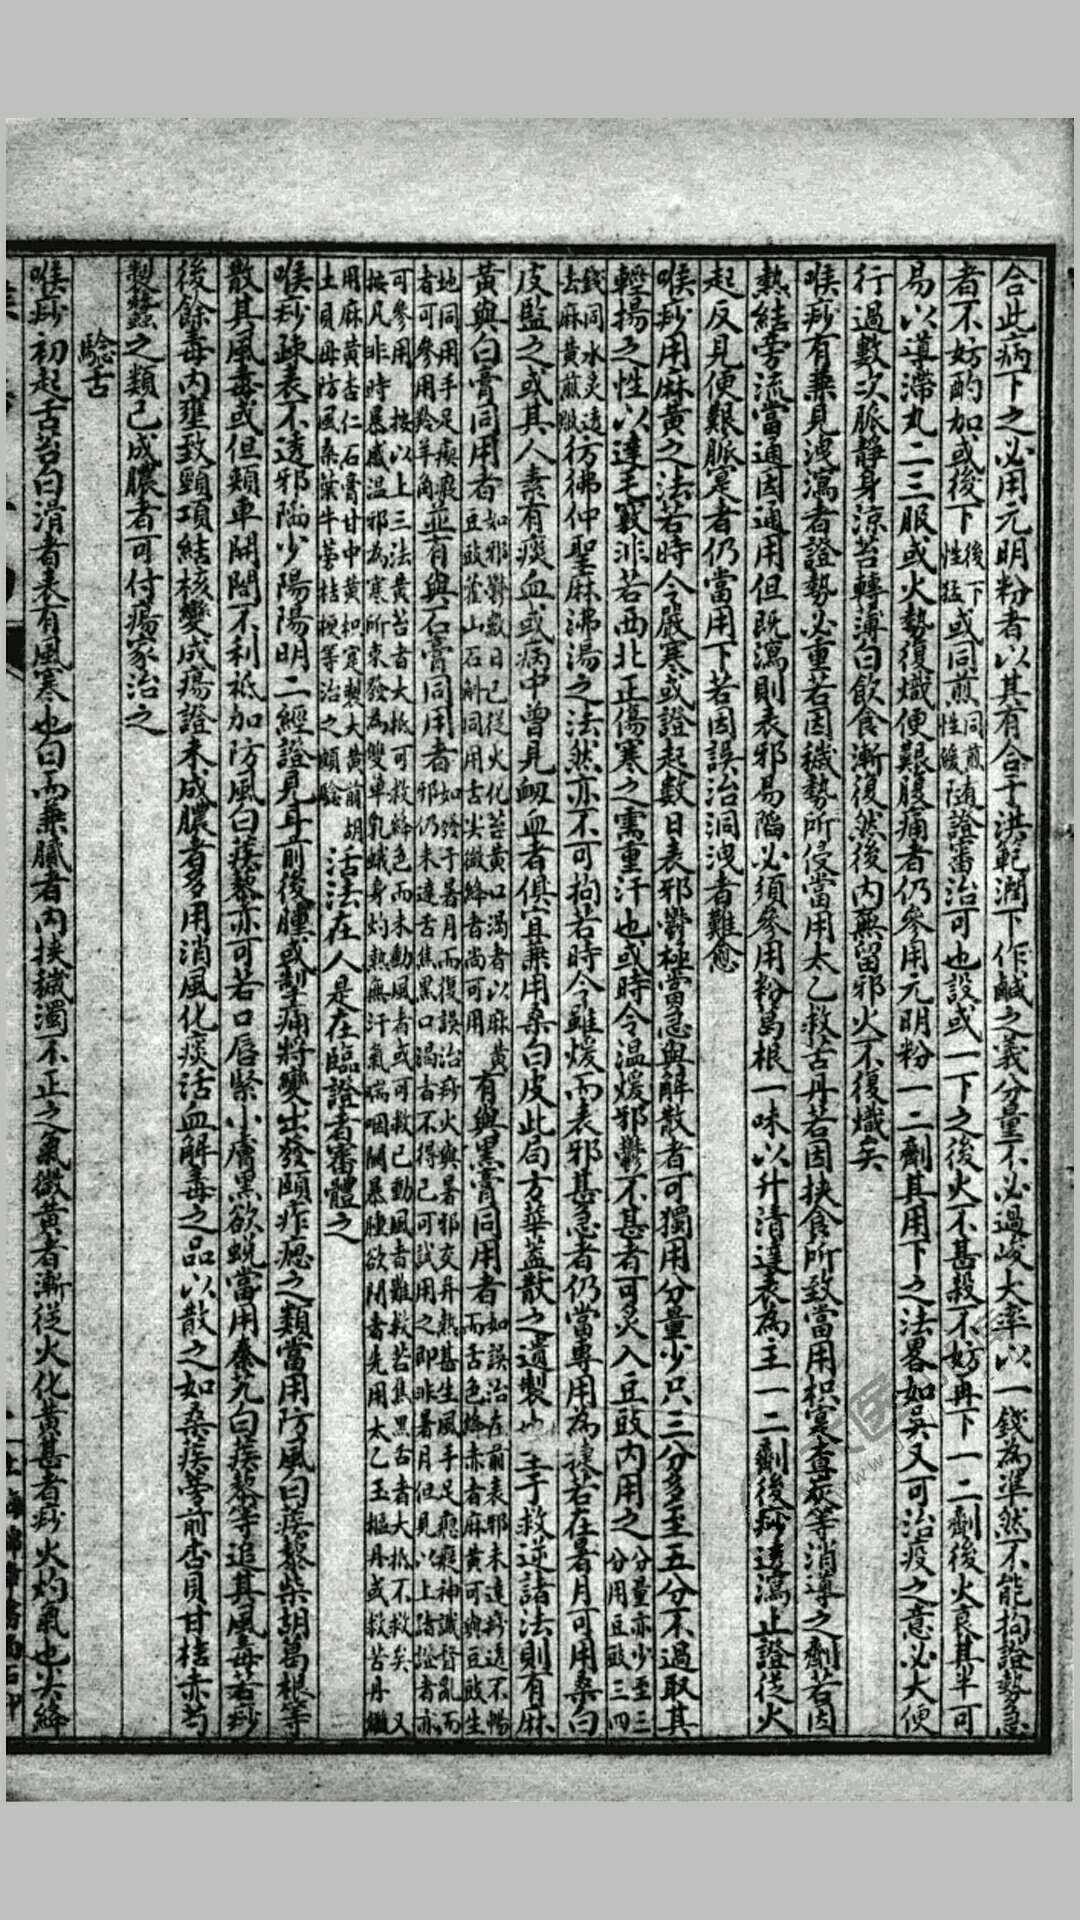 合此病下之必用元明粉者以其有合于洪範潤下作鹹之義分量不必過峻大率以一錢為準然不能拘證勢急
者不妨酌加或後下後下性猛或同煎同煎性緩隨證審治可也設或一下之後火不甚殺不妨再下一二劑後火衰其半可
易以導滯丸二三服或火勢復熾便艱腹痛者仍參用元明粉一二劑其用下之法畧如吳又可治疫之意必大便
行過數次脈靜身涼苔轉薄白飲食漸復然後內無留邪火不復熾矣
喉痧有兼見洩瀉者證勢必重若因穢勢所侵當用太乙救苦丹若因挾食所致當用枳實查炭等消導之劑若因
熱結旁流當通因通用但既瀉則表邪易陷必須參用粉葛根一味以升清達表為主一二劑後痧透瀉止證從火
起反見便艱脈實者仍當用下若因誤治洞洩者難愈
喉痧用麻黃之法若時令嚴寒或證起數日表邪鬱極當急與解散者可獨用分量少只三分多至五分不過取其
輕揚之性以達毛竅非若西北正傷寒之需重汗也或時令溫煖邪鬱不甚者可炙入豆豉內用之分量亦少至三分用豆豉三四
錢同水炙透去麻黃煎彷彿仲聖麻沸湯之法然亦不可拘若時令雖煖而表邪甚急者仍當專用為捷若在暑月可用桑白
皮監之或其人素有痰血或病中曾見衄血者俱宜兼用桑白皮此局方華蓋散之遺製也至于救逆諸法則有麻
黃與白膏同用者如邪鬱數日已從火化苔黃口渴者以麻黃豆豉藿山石斛同用舌尖微絳者尚可用有與黑膏同用者如誤治在前表邪未達痧透不暢而舌色絳赤者麻黃可與豆豉生
地同用手足瘈瘲者可參用羚羊角並有與石膏同用者如發于暑月而復誤治痧火與暑邪交并熱甚生風手足瘈瘲神識督亂而邪仍未達舌焦黑口渴者不得已可試用之即非暑月但見以上諸證者亦
可參用 按以上三法黃苔者大抵可救絳色而未動風者或可救已動風者難救苔焦黑舌者大抵不救矣 又
按凡非時暴感溫邪為寒所束發為雙單乳蛾身灼熱無汗氣喘咽關暴腫欲閉者先用太乙玉樞丹或救苦丹繼
用麻黃杏仁石膏甘中黃枳實製大黃前胡土貝母防風桑葉牛蒡桔梗等治之頗驗活法在人是在臨證者審體之
喉痧疎表不透邪陷少陽陽明二經證見耳前後腫或掣痛將變出發頤痄腮之類當用防風白蒺藜柴胡葛根等
散其風毒或但頰車開闔不利祗加防風白蒺藜亦可若口唇緊小膚黑欲蛻當用秦艽白蒺藜等追其風毒若痧
後餘毒內壅致頸項結核變成瘍證未成膿者多用消風化痰活血解毒之品以散之如桑蒺蒡前杏貝甘桔赤芍
製蠶之類已成膿者可付瘍家治之
驗舌
喉痧初起舌苔白滑者表有風寒也白而兼膩者內挾穢濁不正之氣微黃者漸從火化黃甚者痧火灼氣也尖絳